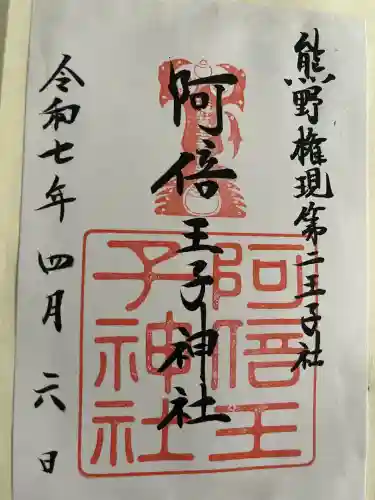 熊野権現第二王子社
阿倍王子神社
阿倍王子神社
令和七年四月六日